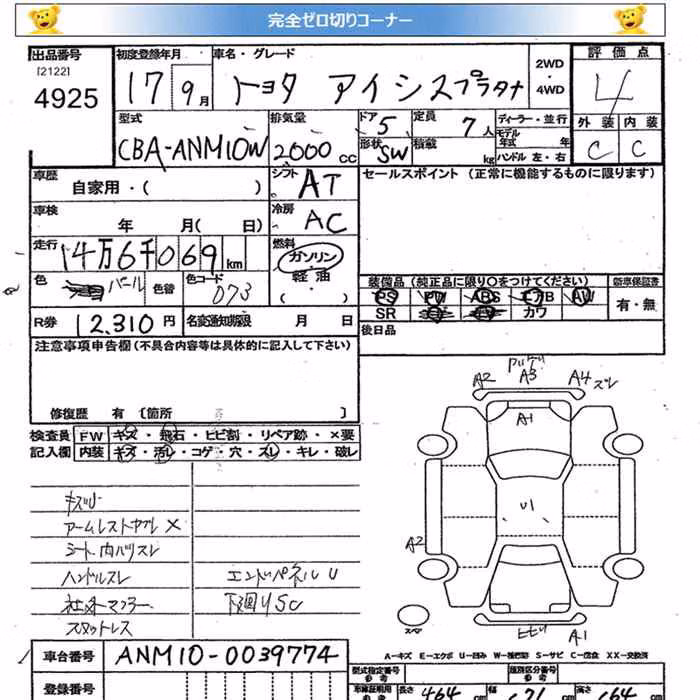 完全ゼロ切りコーナー
出品番号 初度登録年月 車名・グレード 2WD・4WD 評価点
[2122]
4925 17 9月 トヨタ アイシスプラタナ 4
型式 排気量 ドア 定員 ディーラー・並行 外装 内装
CBA-ANM10W 2000cc 5 7人 モデル年式 年 C C
形状 SW 積載 kg ハンドル左・右
車歴 シフト セールスポイント (正常に機能するものに限ります)
自家用・( ) AT
車検 冷房
年 月( 日) AC
走行 14万6千069km 燃料
ガソリン・軽油・( )
色 パール 色替 色コード 073
装備品(純正品に限り○をつけてください) 新車保証書
PS PW ABS エアB AW 有・無
SR カワ
R券 12,310円 名変通知期限 月 日
後日品
注意事項申告欄(不具合内容等は具体的に記入して下さい)
修復歴 有 [箇所 ]
検査員 FW キズ・飛石・ヒビ割・リペア跡・×要
記入欄 内装 キズ・汚レ・コゲ・穴・スレ・キレ・破レ
A2 A3 A4 スレ
A1
U1
A2
A1
キズ
シート内ハリスレ
ハンドルスレ エンドパネルU
社外マフラー 下廻りSC
スタットレス
A-キズ E-エクボ U-凹み W-補修跡 S-サビ C-腐食 XX-交換済
車台番号 ANM10-0039774
登録番号
型式指定番号 参考 類別区分番号 参考
車庫証明用 参考 長さ 464cm 幅 171 高さ 164cm